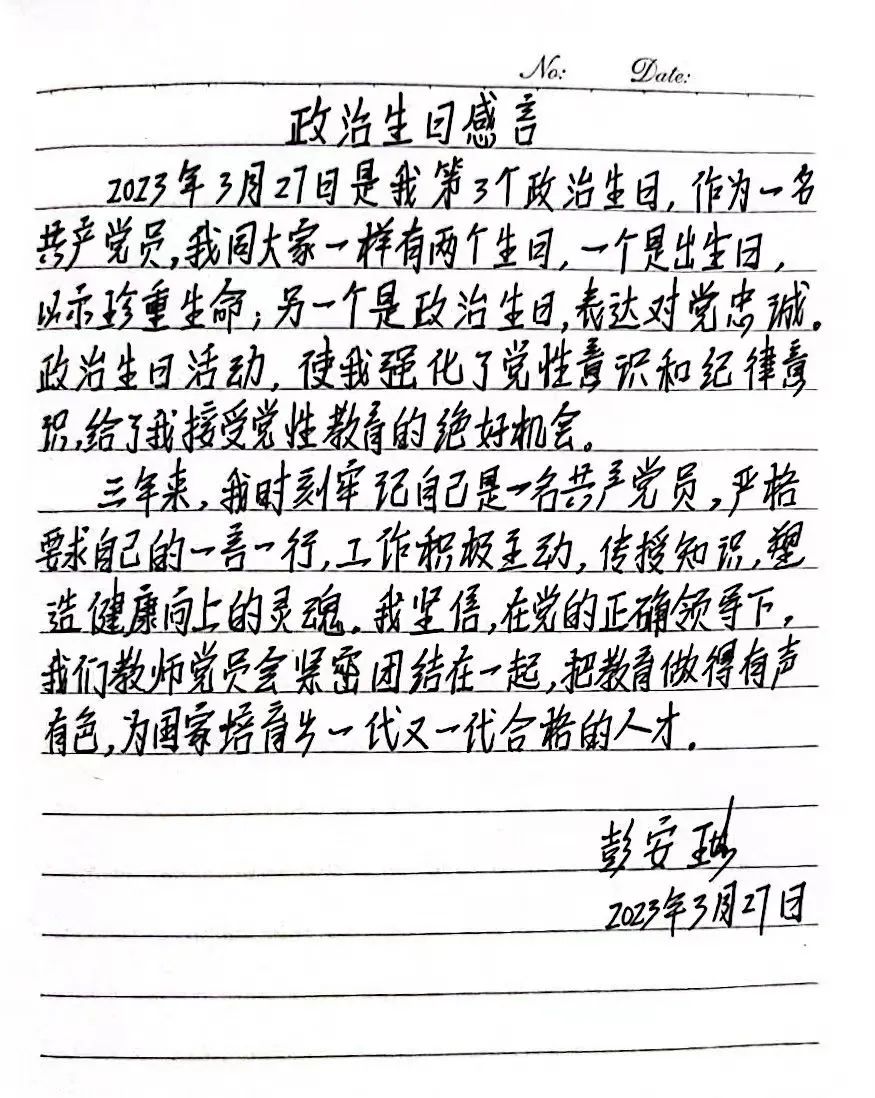 No: Date:
政治生日感言
2023年3月27日是我第3个政治生日,作为一名
共产党员,我同大家一样有两个生日,一个是出生日,
以示珍重生命;另一个是政治生日,表达对党忠诚。
政治生日活动,使我强化了党性意识和纪律意
识,给了我接受党性教育的绝好机会。
三年来,我时刻牢记自己是一名共产党员,严格
要求自己的一言一行,工作积极主动,传授知识,塑
造健康向上的灵魂。我坚信,在党的正确领导下,
我们教师党员会紧密团结在一起,把教育做得有声
有色,为国家培育出一代又一代合格的人才。
彭安
2023年3月27日